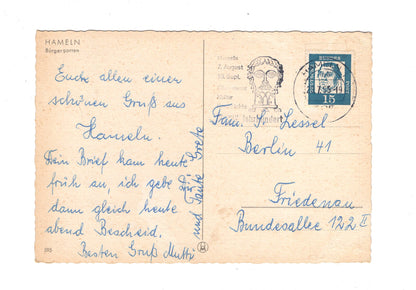 HAMELN
Bürgergarten
Euch allen einen
schönen Gruß aus
Hameln.
Dein Brief kam heute
früh an, ich gebe
dann gleich heute
abend Bescheid.
Besten Gruß Mutti
und Tante Grete
Hameln
7. August
13. Sept.
Jahrhundert
15
Fam. S. Lessel
Berlin 41
Friedenau
Bundesallee 122 II
395